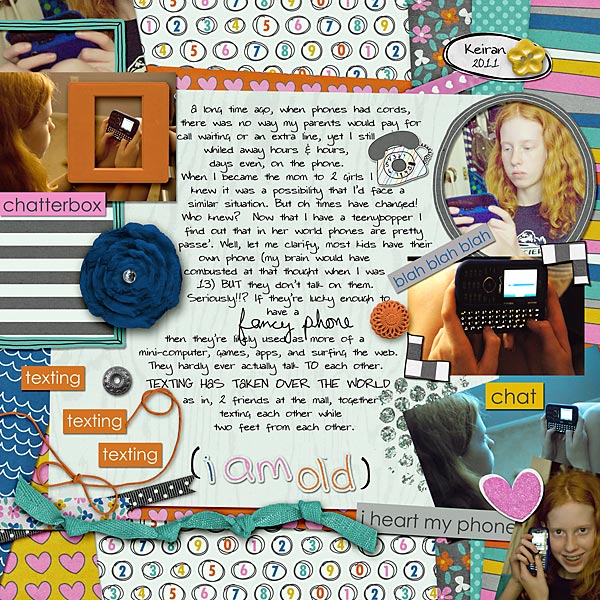 Keiran
2011
a long time ago, when phones had cords,
there was no way my parents would pay for
call waiting or an extra line, yet I still
whiled away hours & hours,
days even, on the phone.
When I became the mom to 2 girls I
knew it was a possibility that I'd face a
similar situation. But oh times have changed!
Who knew? Now that I have a teenybopper I
find out that in her world phones are pretty
passe'. Well, let me clarify, most kids have their
own phone (my brain would have
combusted at that thought when I was
13) BUT they don't talk on them.
Seriously!!? If they're lucky enough to
have a
fancy phone
then they're likely used as more of a
mini-computer, games, apps, and surfing the web.
They hardly ever actually talk TO each other.
TEXTING HAS TAKEN OVER THE WORLD
as in, 2 friends at the mall, together
texting each other while
two feet from each other.
(i am old)
chatterbox
blah blah blah
texting
texting
texting
chat
i heart my phone